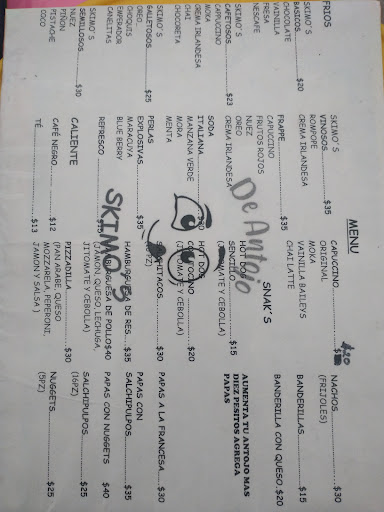 MENU
FRIOS
SKIMO´S
BASICOS..............$20
CHOCOLATE
VAINILLA
FRESA
NESCAFE
SKIMO´S
CAFETOSOS..........$23
CAPPUCINO
MOKA
CREMA IRLANDESA
CHAI
CHOCORETA
SKIMO´S
GALLETOSOS..........$25
OREO
EMPERADOR
CANELITAS
SKIMO´S
SEMILLOSOS..........$30
NUEZ
PIÑON
PISTACHE
COCO
SKIMO´S
VINOSOS..............$35
ROMPOPE
CREMA IRLANDESA
FRAPPE..............$35
CAPUCCINO
FRUTOS ROJOS
NUEZ
OREO
CREMA IRLANDESA
SODA
ITALIANA
MANZANA VERDE
MORA
MENTA
PERLAS
EXPLOSIVAS..........$35
MARACUYA
BLUE BERRY
REFRESCO
CALIENTE
CAFÉ NEGRO..........$12
TÉ..............$13
CAPUCINO..............$20
ORIGINAL
MOKA
VAINILLA BAILEYS
CHAI LATTE
SNAK´S
HOT DOG
SENCILLO..............$15
HOT DOG
(JITOMATE Y CEBOLLA)
HAMBURGUESA DE RES....$35
HAMBURGUESA DE POLLO$40
(JAMON, QUESO, LECHUGA,
JITOMATE Y CEBOLLA)
PIZZADILLA..............$30
(PAN ARABE, QUESO
MOZZARELA, PEPERONI,
JAMON Y SALSA )
NACHOS..............$30
(FRIJOLES)
BANDERILLAS..........$15
BANDERILLA CON QUESO.$20
AUMENTA TU ANTOJO MAS
DIEZ PESITOS AGREGA
PAPAS
PAPAS A LA FRANCESA....$30
PAPAS CON
SALCHIPULPOS..........$35
PAPAS CON NUGGETS $40
SALCHIPULPOS..........$25
(16PZ)
NUGGETS..............$25
(5PZ)
De Antojo
SKIMO'S